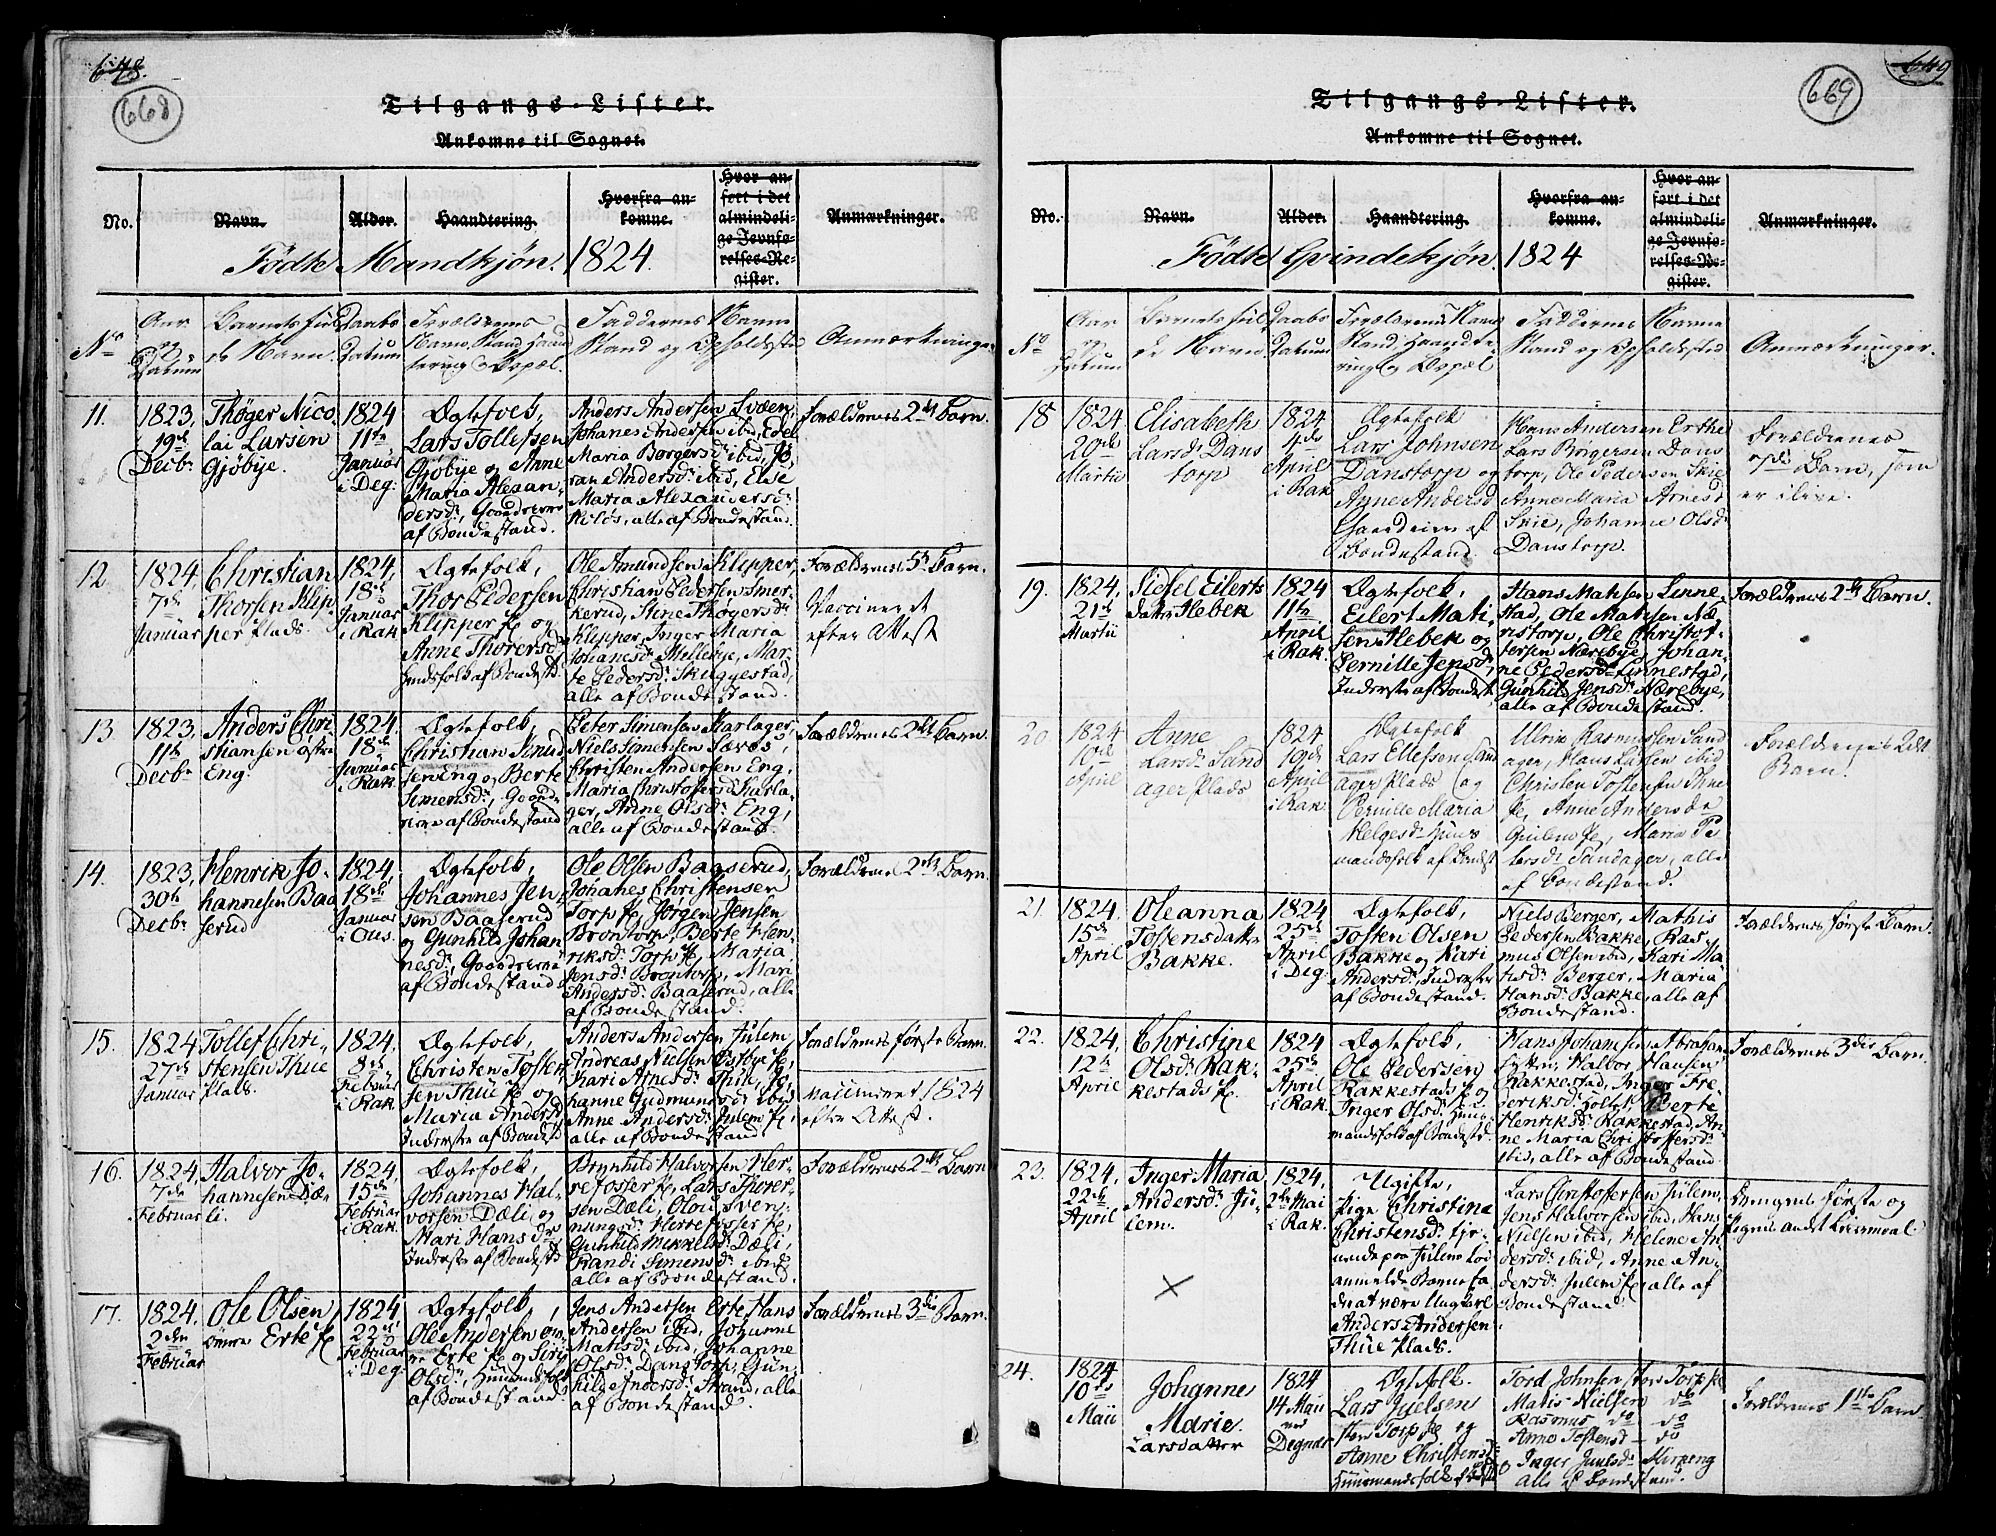 648.
668
Tilgangs-Lister.
Ankomne til Sognet.
No.
Navn.
Alder.
Haandtering.
Hvorfra an-
komne.
Hvor an-
ført i det
almindeli-
ge Jevnfø-
relses-Re-
gister.
Anmærkninger.
Födte Mandkjön. 1824.
No
Aar
og
Datum
Barnets ful
de Navn.
Daabs
Datum
Forældrenes
Navn, Stand, Haand
tering og Bopæl.
Faddernes Navne
Stand og Opholdsted
Anmærkninger
11.
1823,
19de
Decbr
Thöger Nico
lai Larsen
Gjöbye.
1824
11te
Januar
i Deg:
Ægtefolk,
Lars Tollefsen
Gjöbye og Anne
Maria Alexan
dersdr, Gaardmænd
af Bondestand.
Anders Andersen Svæen,
Johanes Andersen ibid, Edel
Maria Borgersdr ibid, Jö
ran Andersdr ibid, Else
Maria Alexandersdr
Kilös, alle af Bondestand.
Forældrenes 2det Barn.
12.
1824,
7de
Januar
Christian
Thorsen Klip
per plads.
1824,
18de
Januar
i Rak
Ægtefolk,
Thor Pedersen
Klipper pl og
Anne Thorersdr
Huusfolk af Bondestd.
Ole Amundsen Klipper,
Christian Pedersen Smer-
kerud, Stine Thögersdr
Klipper, Inger Maria
Johanesdr Mellebye, Mar-
te Pedersdr Skuggestad,
alle af Bondestand.
Forældrenes 5te Barn.
Vaccineret
efter Attest
13
1823.
11te
Decbr
Anders Chri
stiansen östre
Eng.
1824.
18de
Januar
i Rak.
Ægtefolk,
Christian Knud
sen Eng og Berte
Simensdr, Gaard
mænd af Bondestand
Peter Simensen Harlager,
Niels Simensen Særös,
Christen Andersen Eng,
Maria Christoffersdr Harla-
ger, Anne Olsdr Eng,
alle af Bondestand.
Forældrenes 2det Barn.
14.
1823,
30te
Decbr
Henrik Jo-
hannesen Baa
serud
1824,
18de
Januar
i Ous.
Ægtefolk,
Johannes Jen-
sen Baaserud
og Gunhild Johan
nesdr, Gaardmænd
af Bondestand
Ole Olsen Baaserud,
Johanes Christensen
Torp pl, Jörgen Jensen
Brontorp, Berte Hen-
riksdr Torp pl, Maria
Jensdr Brontorp, Mari
Andersdr Baaserud, alle
af Bondestand.
Forældrenes 2det Barn.
15.
1824
27de
Januar
Tollef Chri-
stensen Thue
plads.
1824.
8de
Februar
i Rak
Ægtefolk,
Christen Tosten
sen Thue pl og
Maria Andersdr
Inderste af Bondestd
Anders Andersen Julem,
Andreas Nielsen Östbye pl,
Kari Arnesdr Thue, Jo-
hanne Gudmundsdr ibid
Anne Andersdr Julem pl,
alle af Bondestand
Forældrenes förste Barn.
vaccineret 1824
efter Attest.
16.
1824.
7de
Februar
Halvor Jo-
hannesen Dæ
li.
1824,
15de
Februar
i Rak.
Ægtefolk,
Johannes Hal-
vorsen Dæli og
Mari Hansdr
Inderste af Bondestd
Brynhild Halvorsen Her-
refosser pl, Lars Thorer-
sen Dæli, Olou Sven-
nungsdr Herrefosser pl,
Gunhild Mikkelsdr Dæli,
Randi Simensdr ibid
alle af Bondestand.
Forældrenes 2det Barn
17.
1824.
2den
Februar
Ole Olsen
Erte pl
1824
22de
Februar
i Deg.
Ægtefolk,
Ole Andersen
Erte pl og Siri
Olsdr, Huusmandsfolk
af Bondestand.
Jens Andersen Erte Hans
Andersen ibid, Johanne
Matisdr ibid, Johanne
Olsdr Danstorp, Gun-
hild Andersdr Strand, alle
af Bondestand.
Forældrenes 3die Barn.
649
669
Tilgangs-Lister.
Ankomne til Sognet.
No.
Navn.
Alder.
Haandtering.
Hvorfra an-
komne.
Hvor an-
ført i det
almindeli-
ge Jevnfø-
relses-Re-
gister.
Anmærkninger.
Födte Qvindekjön. 1824
No
Aar
og
Datum
Barnets ful
de Navn
Daabs
Datum
Forældrenes Navn
Stand, Haandte
ring og Bopæl
Faddernes Navne
Stand og Opholdsted
Anmærkninger.
18
1824.
20de
Martii
Elisabeth
Larsdr Dans
torp
1824
4de
April
i Rak
Ægtefolk
Lars Johnsen
Danstorp og
Anne Andersdr
Gaardmænd af
Bondestand.
Hans Andersen Erthe
Lars Börgersen Dans
torp, Ole Pedersen Skie
Anne Maria Arnesdr
Skie, Johanne Olsdr
Danstorp.
Forældrenes
Barn, som
er i live.
19.
1824,
21de
Martii
Sidsel Eilerts
datter Hebek
1824
11te
April
i Rak.
Ægtefolk,
Eilert Mati-
sen Hebek og
Pernille Jensdr,
Inderste af Bondest
Hans Matisen Linne-
stad, Ole Matisen Næ
ristorp, Ole Christof-
fersen Nærebye, Johan-
ne Pedersdr Linnestad,
Gunhild Jensdr Nærebye,
alle af Bondestand
Forældrenes 2det Barn.
20
1824
10de
April
Anne
Larsdr Sand
ager plads
1824
19de
April
i Rak
Ægtefolk
Lars Ellefsen Sand
ager plads og
Pernille Maria
Helgesdr Huus
mandsfolk af Bondest
Ulrik Rasmussen Sand
ager, Hans Larsen ibid
Christen Tostensen Thue
pl, Anne Andersdr
Julem pl, Maria Pe
dersdr Sandager, alle
af Bondestand.
Forældrenes 2det
Barn.
21.
1824.
15de
April
Oleanna
Tostensdatter
Bakke.
1824.
25de
April
i Deg
Ægtefolk,
Tosten Olsen
Bakke og Kari
Andersdr, Inderste
af Bondestand.
Niels Berger, Mathis
Pedersen Bakke, Ras-
mus Olsen ibid, Kari Ma
tisdr Berger, Maria
Hansdr Bakke, alle af
Bondestand.
Forældrenes förste Barn.
22.
1824,
12te
April
Christine
Olsdr Rak-
kestads pl.
1824
25de
April
i Rak.
Ægtefolk,
Ole Pedersen
Rakkestads pl og
Inger Olsdr Huus-
mandsfolk af Bondestd.
Hans Johansen Abraham
lykken, Halvor Hansen
Rakkestad, Inger Fre
deriksdr Holtet, Berte
Henriksdr Rakkestad, An
ne Maria Christoffersdr
ibid, alle af Bondestand.
Forældrenes 3die Barn
23.
1824.
22de
April
Inger Maria
Andersdr Ju-
lem.
1824.
2den Mai
i Rak.
Ugifte,
Pige Christina
Christensdr tje-
nende paa Julem
anmeldt Barnefa
der at være Ungkarl
Anders Andersen
Thue plads.
Lars Christoffersen Julem,
Jens Halvorsen ibid, Hans
Nielsen ibid, Helene An
dersdr ibid, Anne An-
dersdr Julem pl alle af
Bondestand
förste og
andet Leiermaal
24.
1824
10de
Maii
Johanne
Marie
Larsdatter
1824
14 Maii
ved
Degnæs
Ægtefolk.
Lars Juelsen
Torp pl og
Anne Christensdr
Huusmandsfolk
Tord Johnsen Torp pl
Matis Nielsen do
Rasmus do do
Anne Tostensd - do
Inger Juulsdr Mirneng
alle af Bondestand.
Forældrenes 1ste Barn.